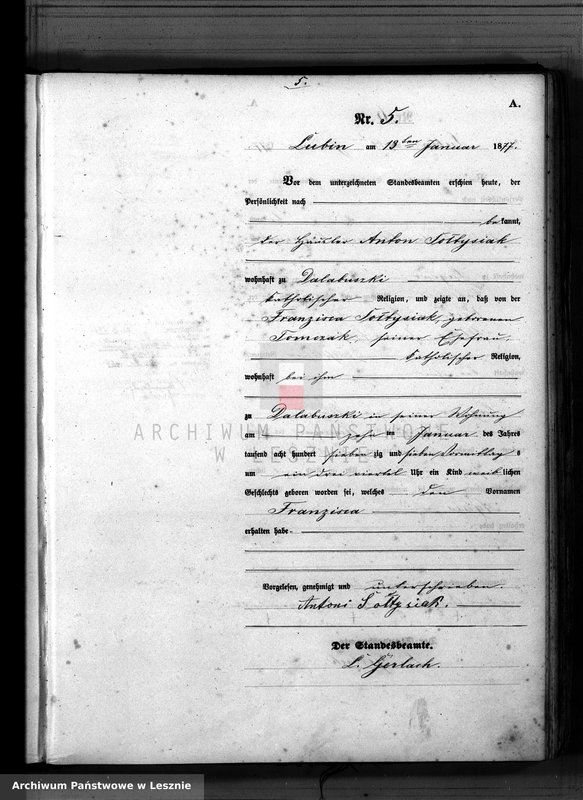 5.
A.
Nr. 5.
Lubin am 13ten Januar 1877.
Vor dem unterzeichneten Standesbeamten erschien heute, der
Persönlichkeit nach
bekannt,
der Häusler Anton Sołtysiak
wohnhaft zu Dalabuszki
katholischer Religion, und zeigte an, daß von der
Franzisca Sołtysiak, geborenen
Tomczak, seiner Ehefrau,
katholischer Religion,
wohnhaft bei ihm
zu Dalabuszki in seiner Wohnung
am zehnten Januar des Jahres
tausend acht hundert siebenzig und sieben Vormittags
um ein drei viertel Uhr ein Kind weiblichen
Geschlechts geboren worden sei, welches den Vornamen
Franzisca
erhalten habe.
Vorgelesen, genehmigt und unterschrieben.
Antoni Sołtysiak.
Der Standesbeamte.
L. Gerlach.
ARCHIWUM PAŃSTWOWE
W LESZNIE
Archiwum Państwowe w Lesznie